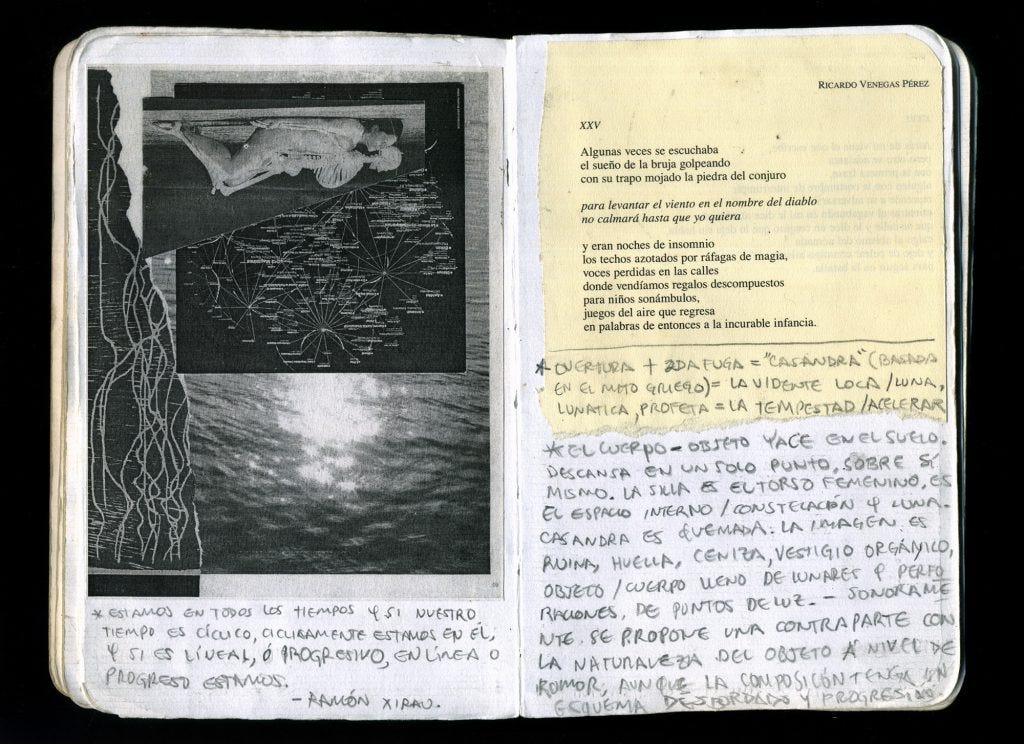 * ESTAMOS EN TODOS LOS TIEMPOS Y SI NUESTRO
TIEMPO ES CÍCLICO, CICLICAMENTE ESTAMOS EN ÉL,
Y SI ES LÍNEAL, Ó PROGRESIVO, EN LÍNEA O
PROGRESO ESTAMOS.
- RAMÓN XIRAU.
RICARDO VENEGAS PÉREZ
XXV
Algunas veces se escuchaba
el sueño de la bruja golpeando
con su trapo mojado la piedra del conjuro
para levantar el viento en el nombre del diablo
no calmará hasta que yo quiera
y eran noches de insomnio
los techos azotados por ráfagas de magia,
voces perdidas en las calles
donde vendíamos regalos descompuestos
para niños sonámbulos,
juegos del aire que regresa
en palabras de entonces a la incurable infancia.
* OVERTURA + 2DA FUGA = "CASANDRA" (BASADA
EN EL MITO GRIEGO) = LA VIDENTE LOCA / LUNA,
LUNATICA, PROFETA = LA TEMPESTAD / ACELERAR
* EL CUERPO - OBJETO YACE EN EL SUELO.
DESCANSA EN UN SOLO PUNTO, SOBRE SÍ
MISMO. LA SILLA ES EL TORSO FEMENINO, ES
EL ESPACIO INTERNO / CONSTELACIÓN Y LUNA.
CASANDRA ES QUEMADA. LA IMAGEN ES
RUINA, HUELLA, CENIZA, VESTIGIO ORGÁNICO,
OBJETO / CUERPO LLENO DE LUNARES Y PERFO
RACIONES, DE PUNTOS DE LUZ. - SONORAME
NTE. SE PROPONE UNA CONTRAPARTE CON
LA NATURALEZA DEL OBJETO A NIVEL DE
RUMOR, AUNQUE LA COMPOSICIÓN TENGA UN
ESQUEMA DESBORDADO Y PROGRESIVO.